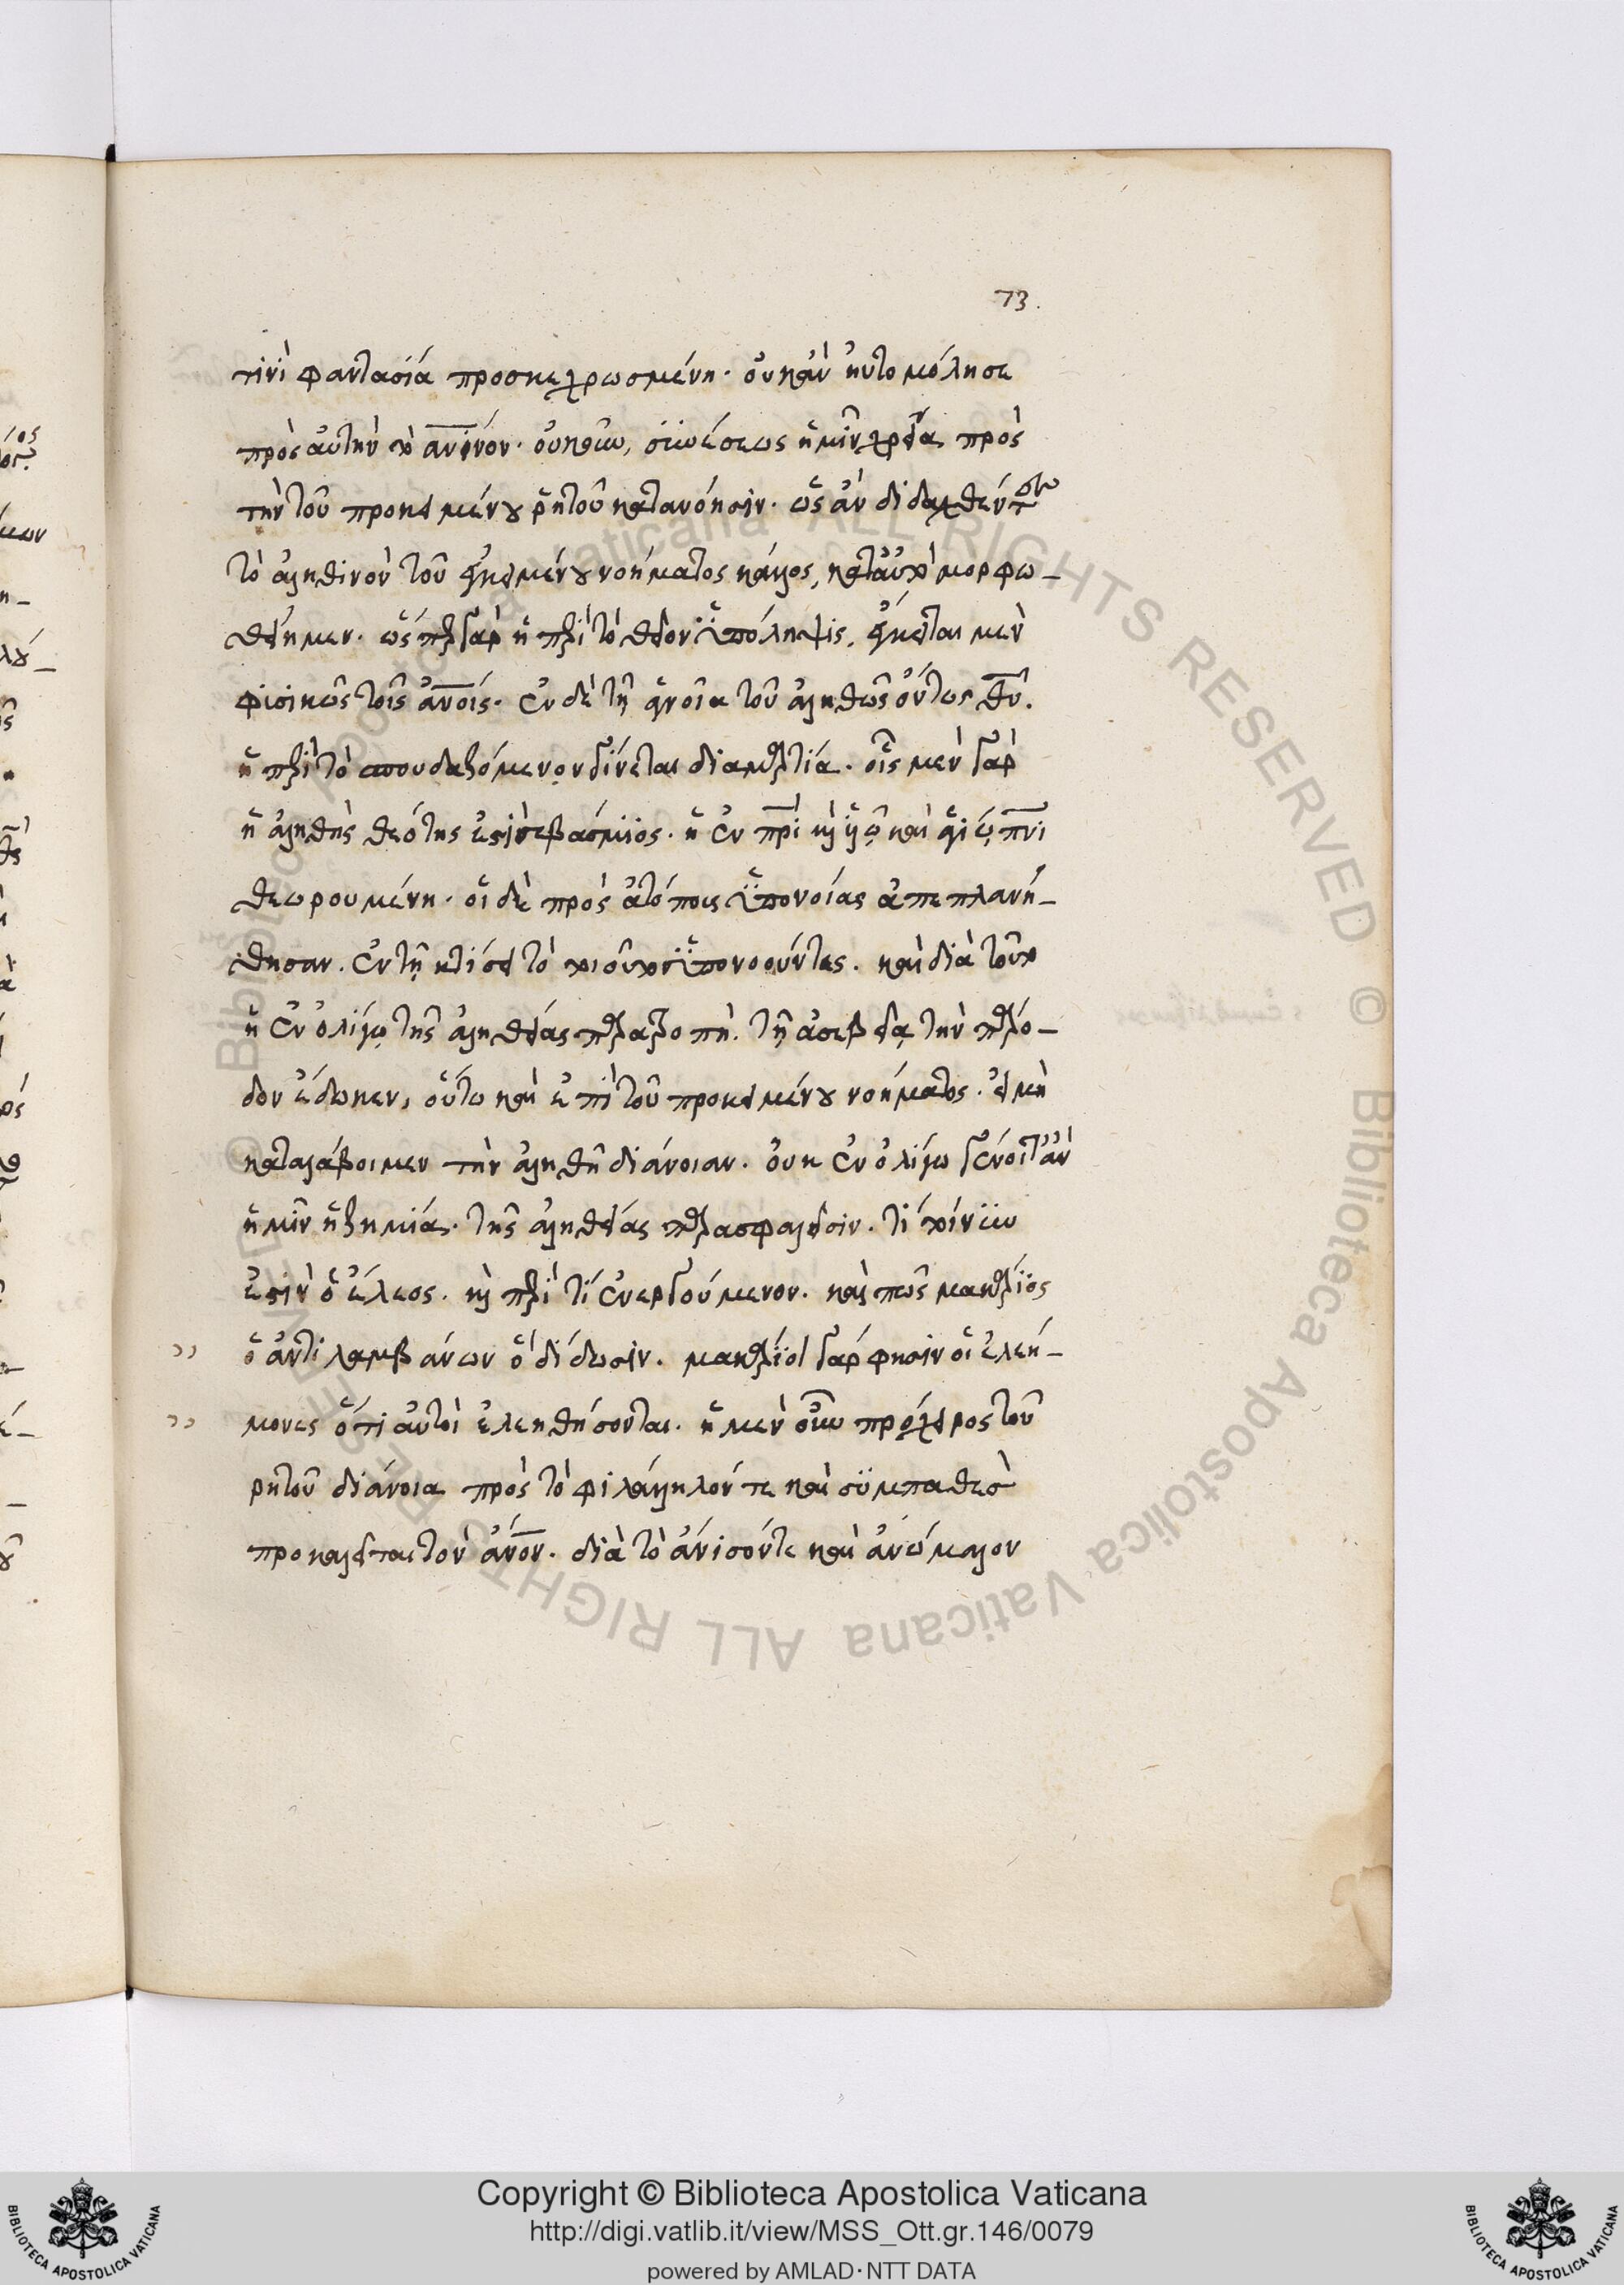 73.
τινὶ φαντασία προσκεχρωσμένη· οὐκἂν ηὐτομόλησε
πρὸς αὐτὴν τὸ ἀνθινον· οὐκοῦν, συνέσεως ἡμῖν χρεία πρὸς
τὴν τοῦ προκειμένου ῥητοῦ κατανόησιν· ὡς ἂν διδαχθέντες
τὸ ἀληθινὸν τοῦ ἐγκειμένου νοήματος κάλλος, κατ' αὐτὸ μορφω_
θείημεν· ὥσπερ γὰρ ἡ περὶ τὸ θεῖον ὑπόληψις, ἔγκειται μὲν
φισικῶς τοῖς ἀνοις· ἐν δὲ τῇ ἀγνοῖα τοῦ ἀληθῶς ὄντως θυ.
ἡ περὶ τὸ σπουδαζόμενον γίνεται διαμαρτία· οἷς μὲν γὰρ
ἡ ἀληθὴς θεότης ἐστὶ σεβάσμιος· ἡ ἐν πρι κ υἱῷ καὶ ἁγίῳ πνι
θεωρουμένη· οἱ δὲ πρὸς ἀτόπους ὑπονοίας ἀπεπλανή_
θησαν. ἐν τῇ κτίσει τὸ τοιοῦτο ὑπονοοῦντες. καὶ διὰ τοῦτο
ἡ ἐν ὀλίγῳ τῆς ἀληθείας παρατροπὴ. τῇ ἀσεβείᾳ τὴν πάρο_
δον ἔδωκεν, οὕτω καὶ ἐπὶ τοῦ προκειμένου νοήματος. εἰ μὴ
καταλάβοιμεν τὴν ἀληθῆ διάνοιαν. οὐκ ἐν ὀλίγω γένοιτ' ἂν
ἡμῖν ἡ ζημιά. τῆς ἀληθείας παρασφαλεῖσιν. τί τοίνυν
ἐστὶν ὁ ἔλεος. κ περὶ τί ἐνεργούμενον. καὶ πῶς μακάριος
ὁ ἀντιλαμβάνων ὃ δίδωσιν. μακάριοι γάρ φησιν οἱ ἐλεή_
μονες ὅτι αὐτοὶ ἐλεηθήσονται. ἡ μὲν οὖν πρόχειρος τοῦ
ρητοῦ διάνοια πρὸς τὸ φιλάλληλόν τε καὶ συμπαθὲσ
προκαλεῖται τὸν ἀνον. διὰ τὸ ἄνισόν τε καὶ ἀνώμαλον
Copyright © Biblioteca Apostolica Vaticana
http://digi.vatlib.it/view/MSS_Ott.gr.146/0079
powered by AMLAD·NTT DATA
BIBLIOTECA APOSTOLICA VATICANA
BIBLIOTECA APOSTOLICA VATICANA
© Biblioteca Apostolica Vaticana ALL RIGHTS RESERVED © Biblioteca Apostolica Vaticana ALL RIGHTS RESERVED